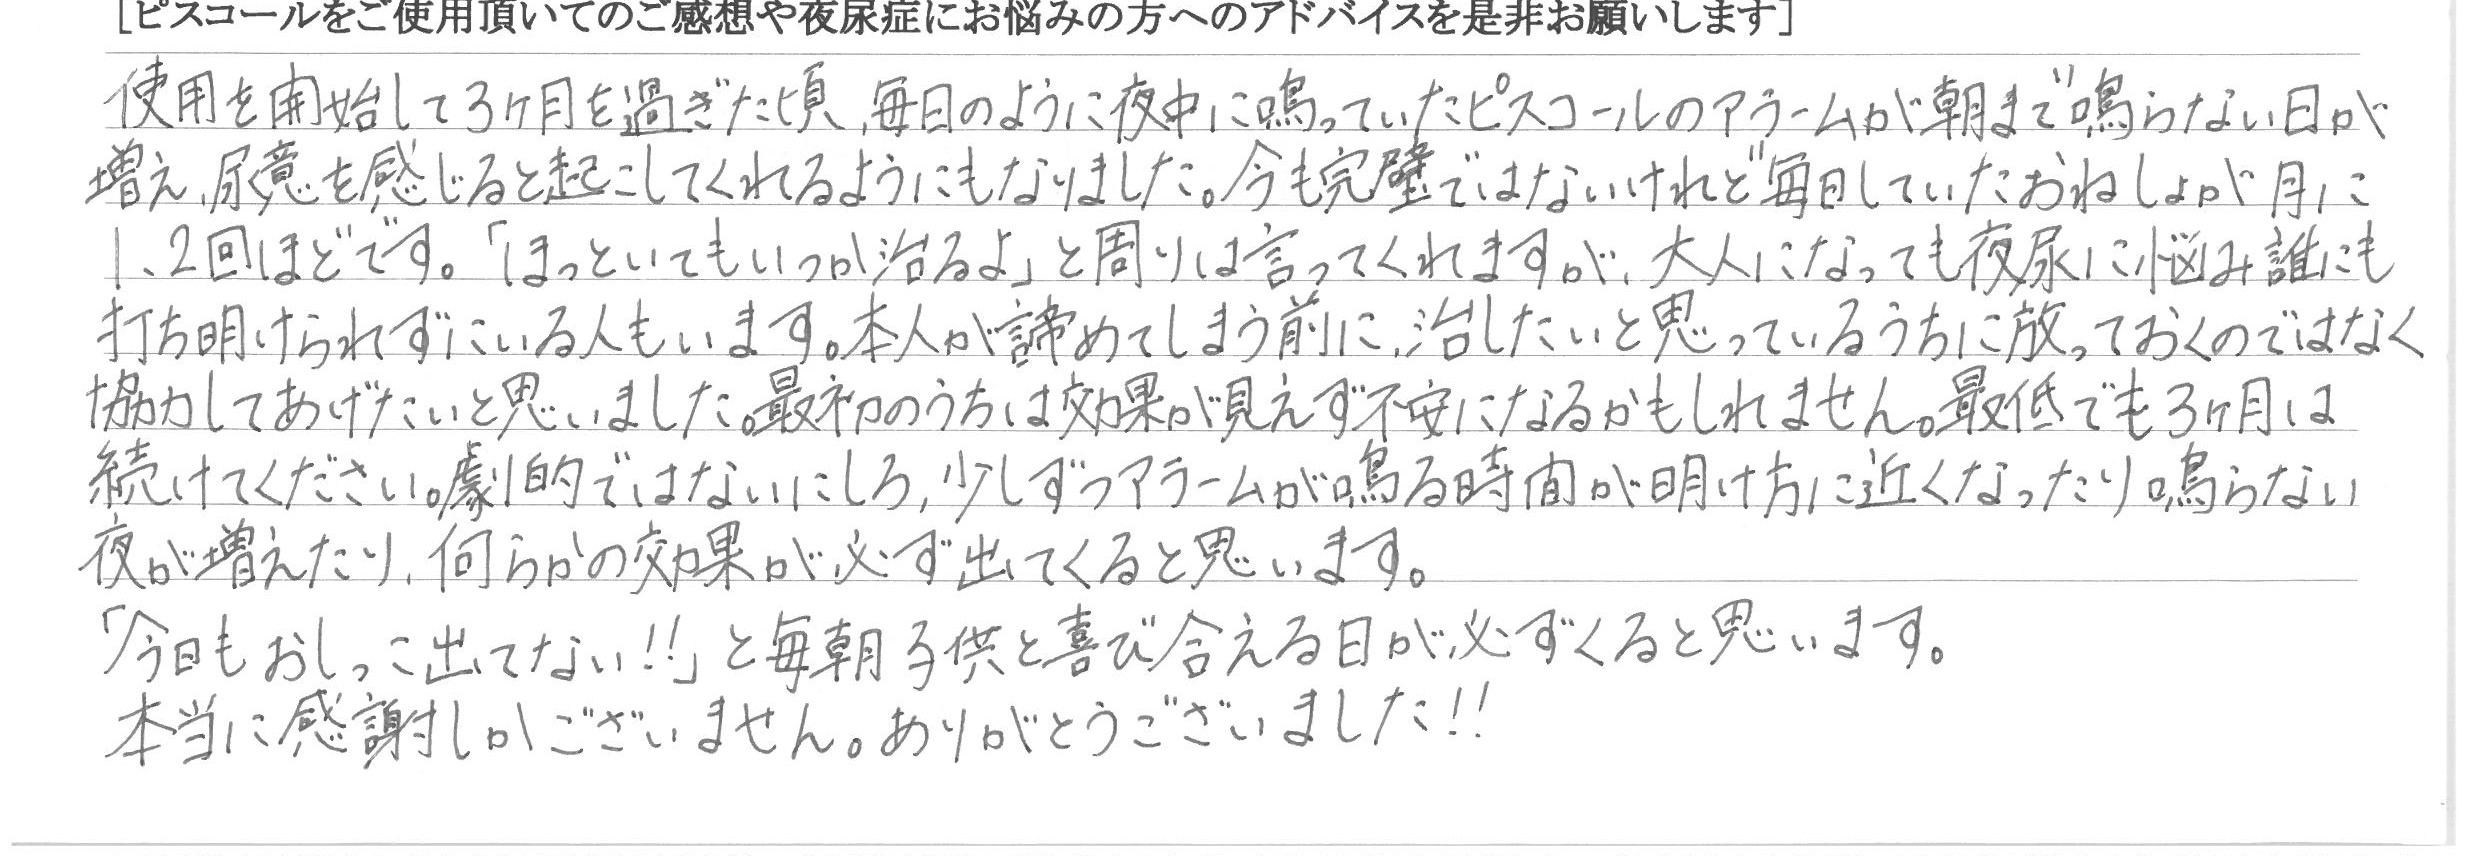 [ピスコールをご使用頂いてのご感想や夜尿症にお悩みの方へのアドバイスを是非お願いします]
使用を開始して3ヶ月を過ぎた頃、毎日のように夜中に鳴っていたピスコールのアラームが朝まで鳴らない日が
増え、尿意を感じると起こしてくれるようにもなりました。今も完璧ではないけれど毎日していたおねしょが月に
1、2回ほどです。「ほっといてもいつか治るよ」と周りは言ってくれますが、大人になっても夜尿に悩み誰にも
打ち明けられずにいる人もいます。本人が諦めてしまう前に、治したいと思っているうちに放っておくのではなく
協力してあげたいと思いました。最初のうちは効果が見えず不安になるかもしれません。最低でも3ヶ月は
続けてください。劇的ではないにしろ、少しずつアラームが鳴る時間が明け方に近くなったり鳴らない
夜が増えたり、何らかの効果が必ず出てくると思います。
「今日もおしっこ出てない!!」と毎朝子供と喜び合える日が必ずくると思います。
本当に感謝しかございません。ありがとうございました!!